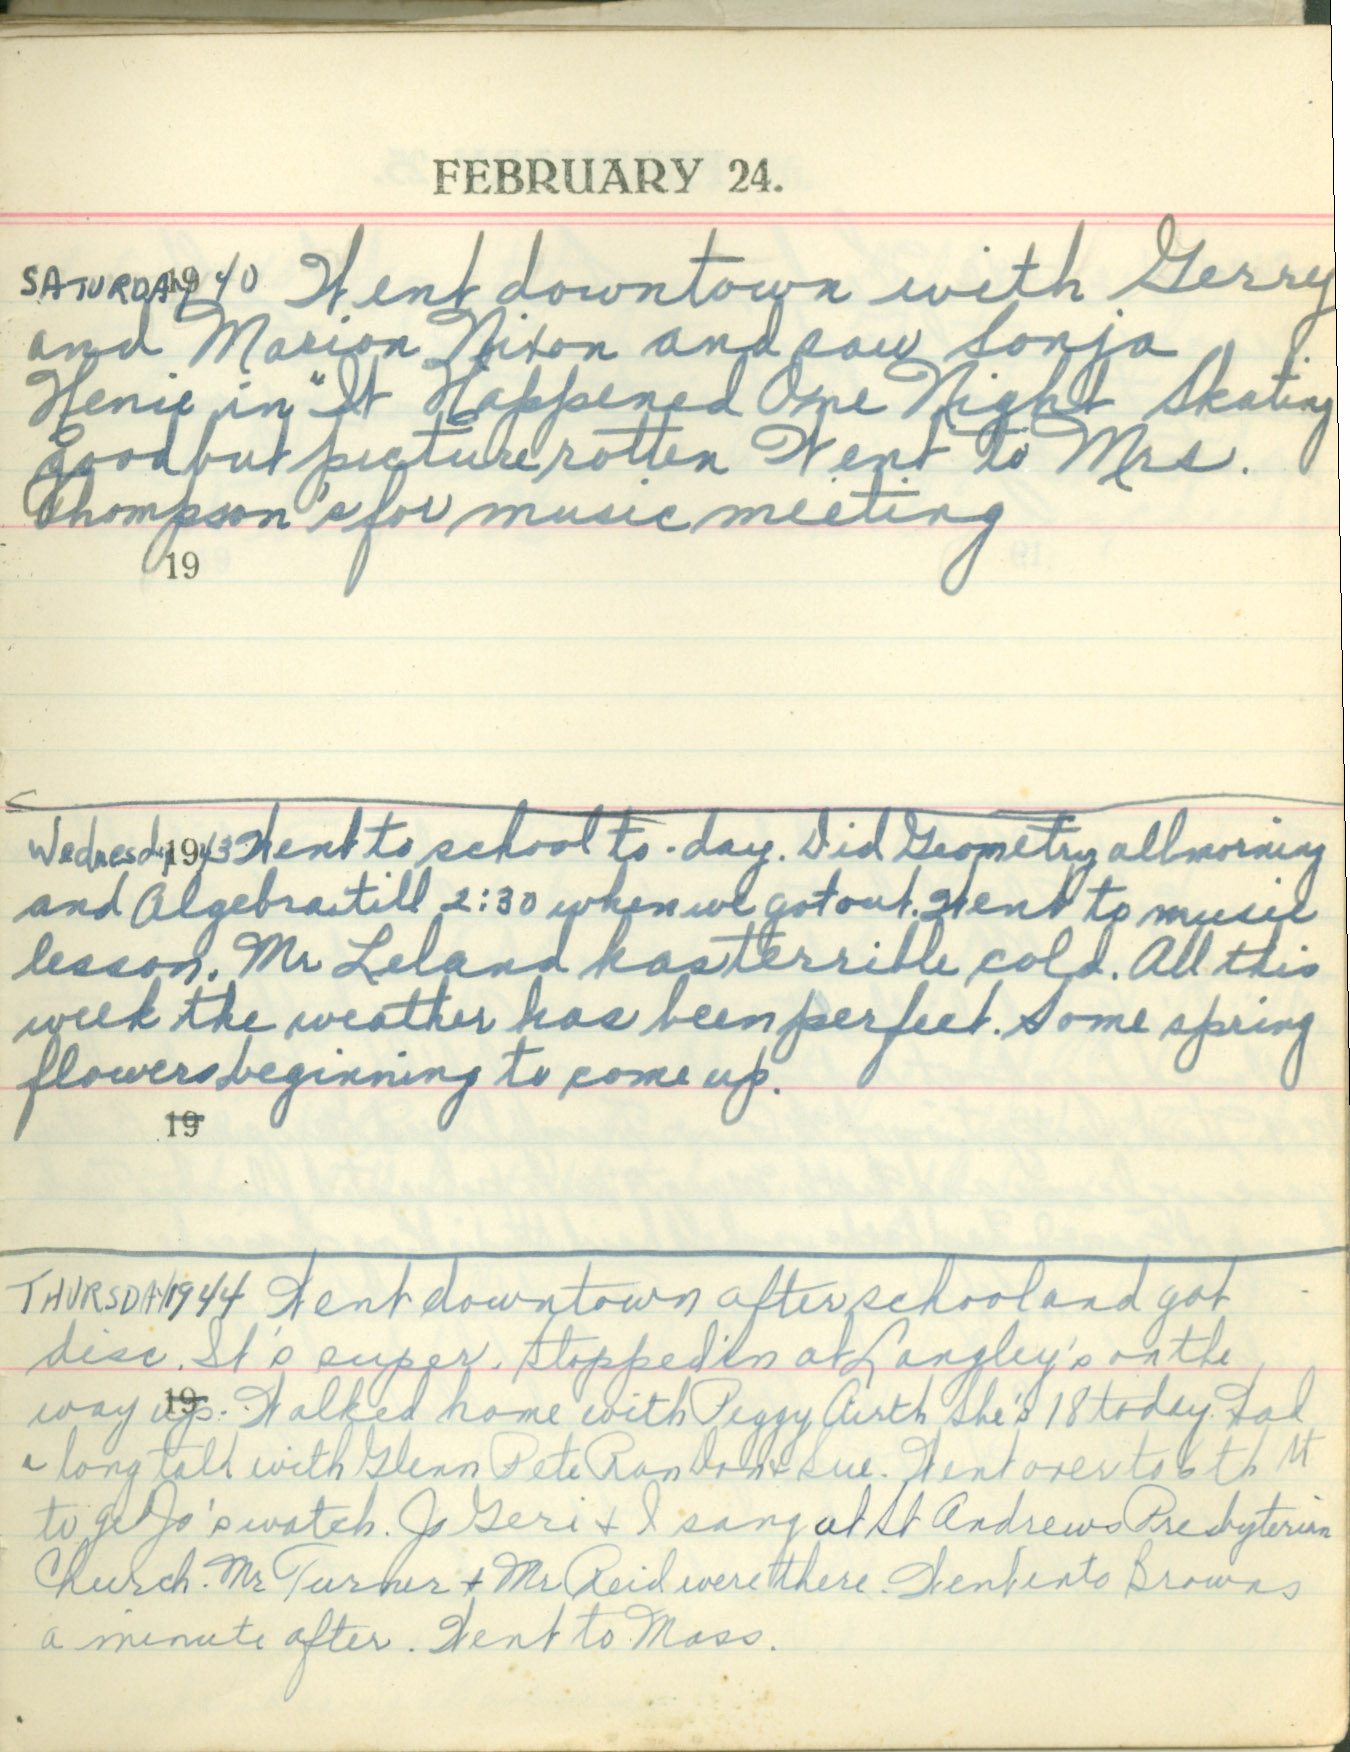 FEBRUARY 24.
SATURDAY 1940 Went downtown with Gerry
and Marion Nixon and saw Sonja
Henie in "It Happened One Night Skating
good but picture rotten Went to Mrs.
Thompson's for music meeting
19
Wednesday 1943 Went to school to-day. Did Geometry all morning
and Algebra till 2:30 when we got out. Went to music
lesson. Mr Leland has terrible cold. All this
week the weather has been perfect. Some spring
flowers beginning to come up.
19
THURSDAY 1944 Went downtown after school and got
disc. It's super. Stopped in at Langley's on the
19
way up. Walked home with Peggy Airth She's 18 today. Had
a long talk with Glenn Pete Ron Don & Sue. Went over to 6th St
to get Jo's watch. Jo Geri & I sang at St Andrews Presbyterian
Church. Mr Turner & Mr Reid were there. Went into Browns
a minute after. Went to Mass.